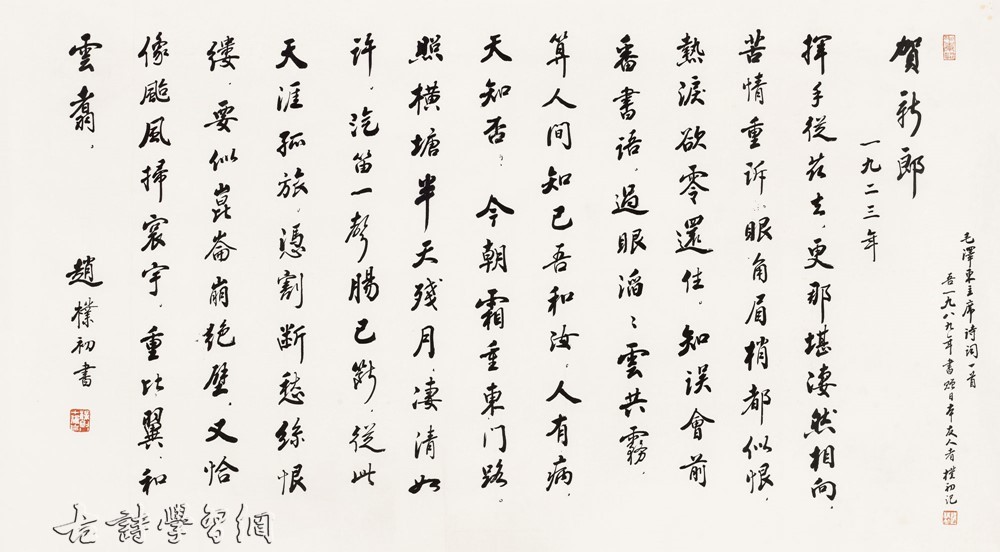 毛澤東主席詩詞一首
吾一九八九年書贈日本友人者 樸初記
賀新郎
一九二三年
揮手從茲去，更那堪淒然相向，
苦情重訴。眼角眉梢都似恨，
熱淚欲零還住。知誤會前
番書語，過眼滔滔雲共霧，
算人間知己吾和汝。人有病，
天知否？今朝霜重東門路。
照橫塘半天殘月，淒清如
許。汽笛一聲腸已斷，從此
天涯孤旅。憑割斷愁絲恨
縷。要似崑崙崩絕壁，又恰
像颱風掃寰宇。重比翼，和
雲翥。
趙樸初書